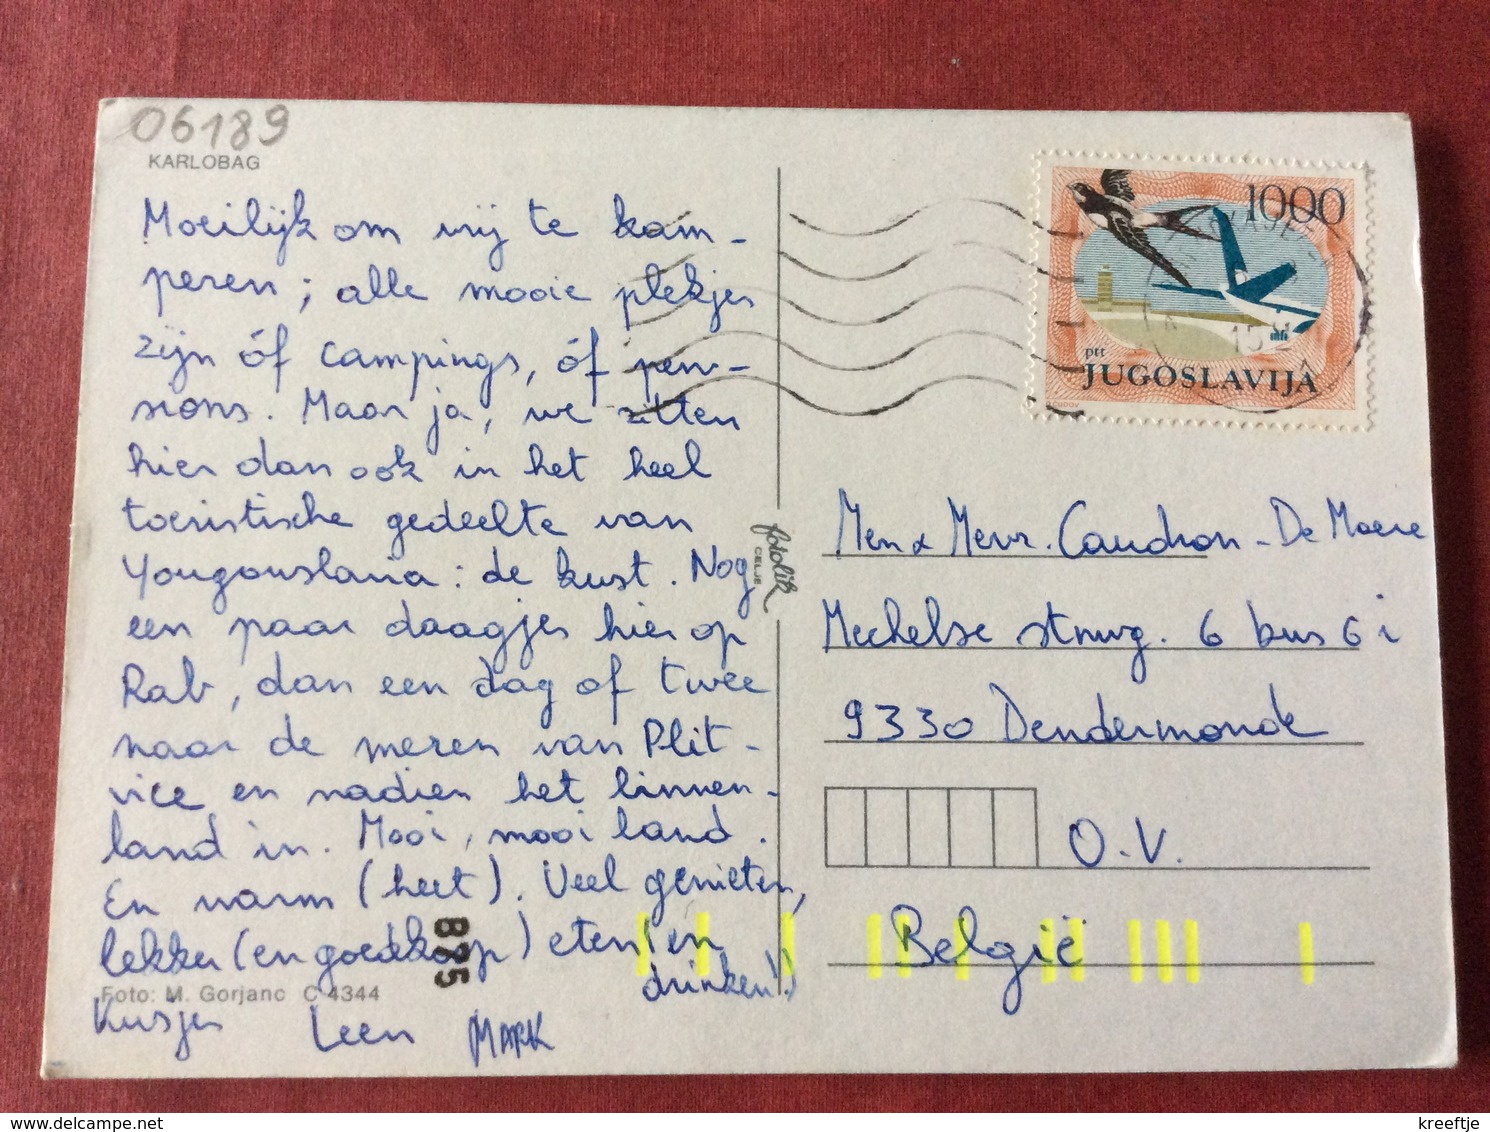 06189
KARLOBAG
Moeilijk om vrij te kam-
peren; alle mooie plekjes
zijn óf campings, óf pen-
sions. Maar ja, we zitten
hier dan ook in het heel
toeristische gedeelte van
Yougouslavia: de kust. Nog
een paar daagjes hier op
Rab, dan een dag of twee
naar de meren van Plit-
vice en nadien het binnen-
land in. Mooi, mooi land.
En warm (heet). Veel genieten,
lekker (en goedkoop) eten (en
drinken!)
B735
Foto: M. Gorjanc C 4344
Kusjes Leen MARK
fotolik
CELJE
1000
ptt
JUGOSLAVIJA
Men & Mevr. Caudron - De Moere
Mechelse stnwg. 6 bus 6 i
9330 Dendermonde
O.V.
België
kreeftje